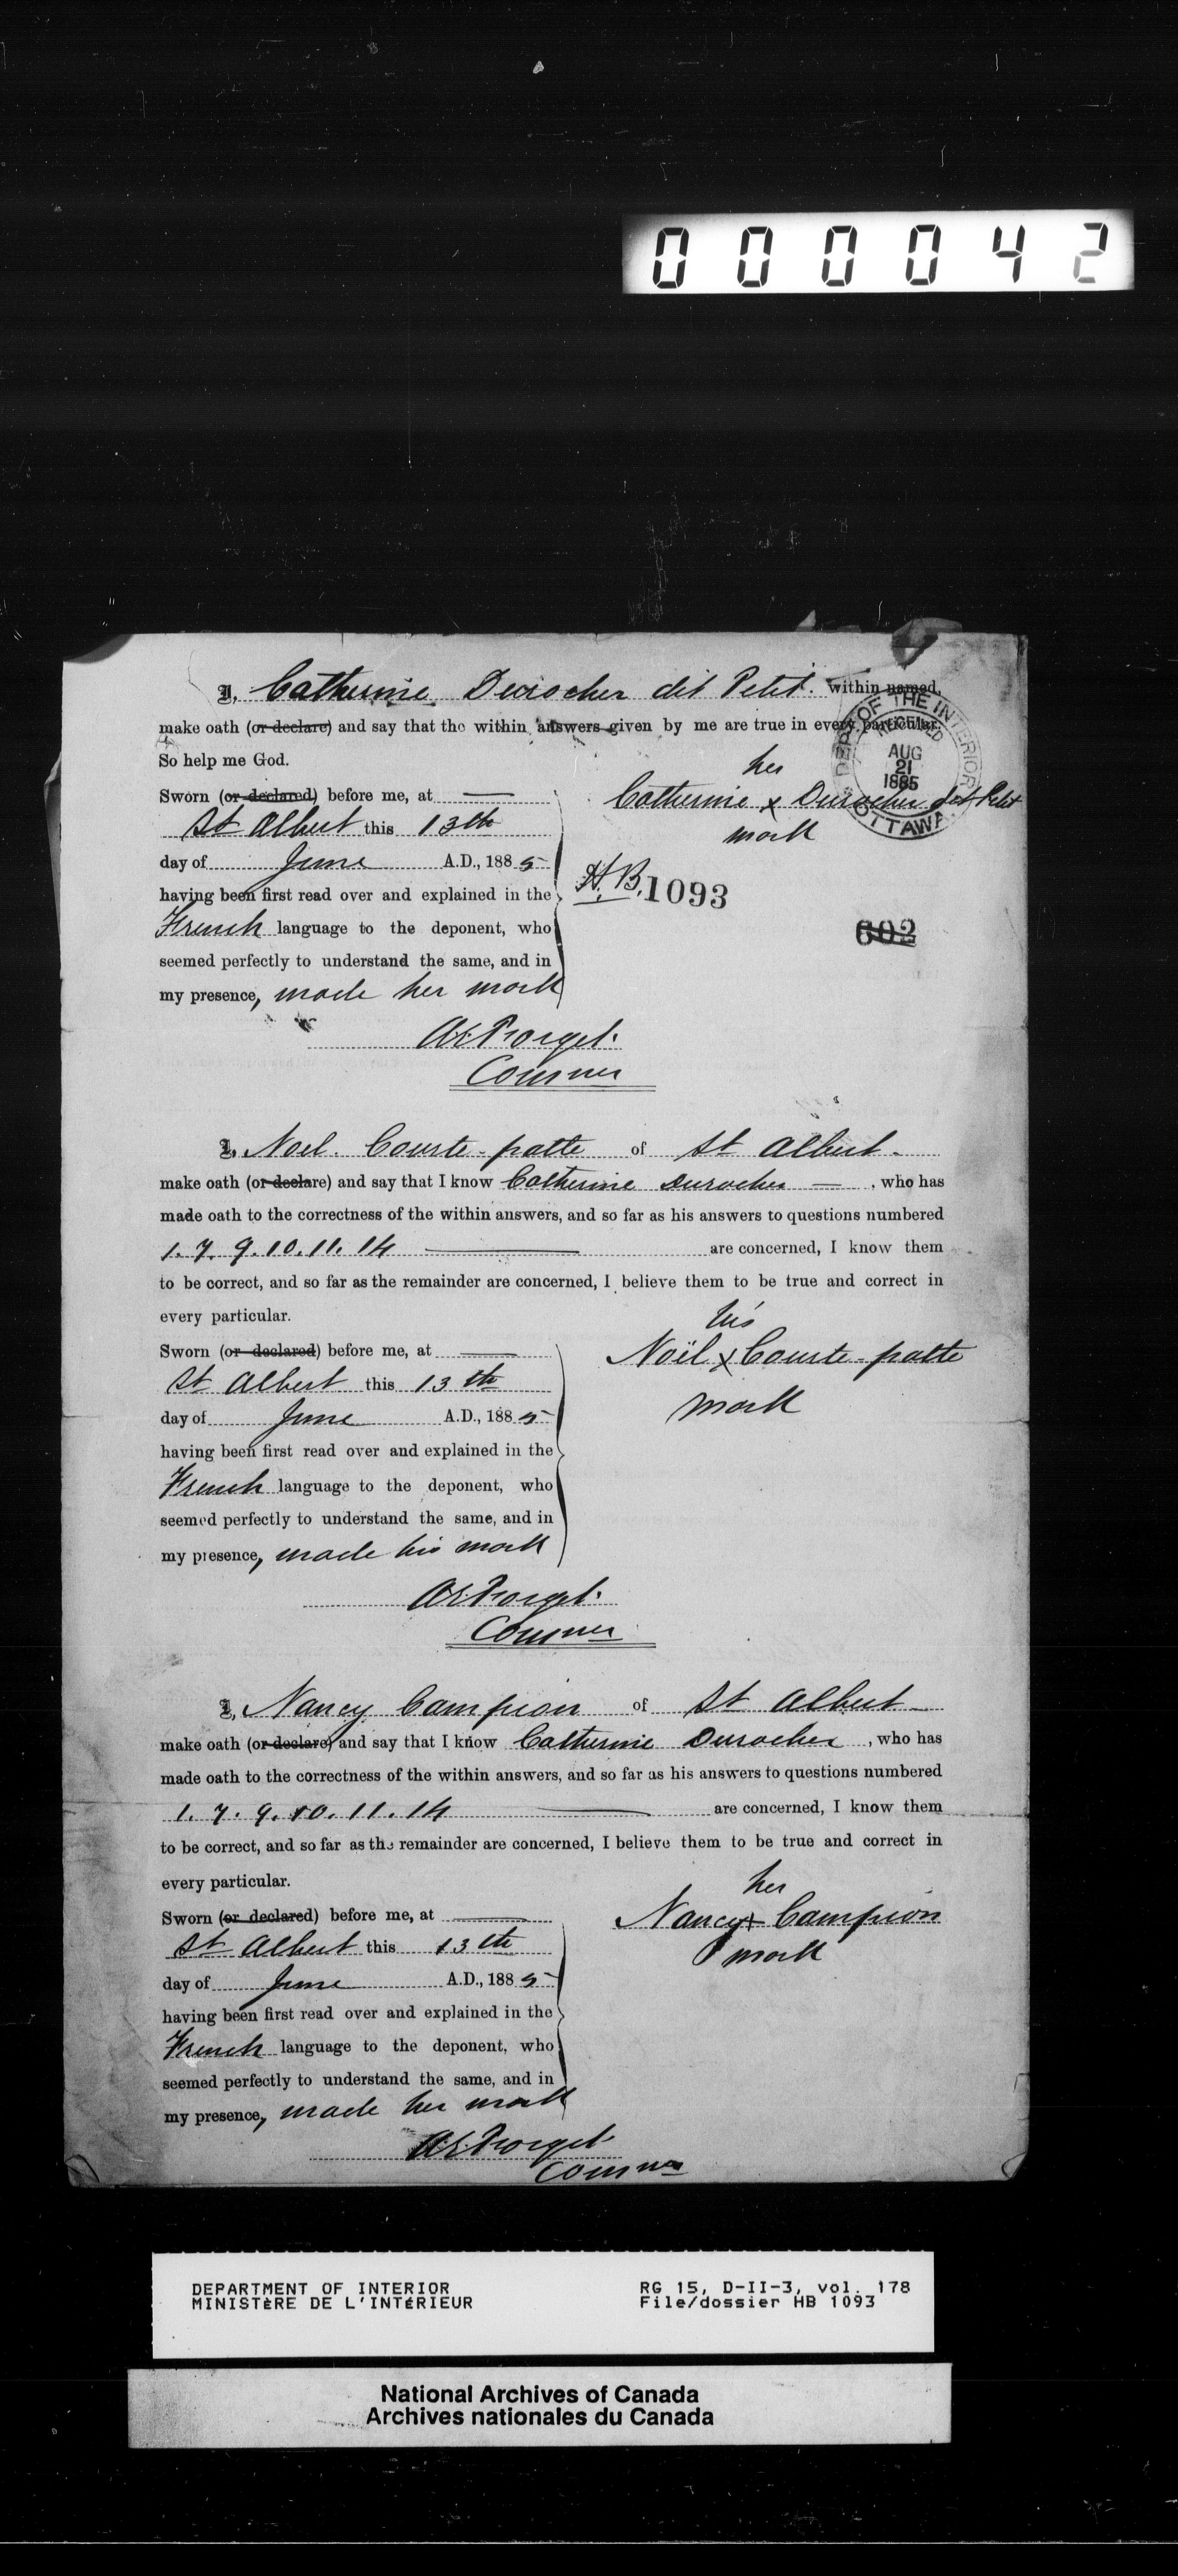 000042
I, Catherine Durocher dit Petit. within named,
make oath (or declare) and say that the within answers given by me are true in every particular.
So help me God.
DEPT OF THE INTERIOR
RECEIVED
AUG
21
1885
OTTAWA
Sworn (or declared) before me, at —
St Albert this 13th
day of June A.D., 1885
having been first read over and explained in the
French language to the deponent, who
seemed perfectly to understand the same, and in
my presence, made her mark
her
Catherine x Durocher dit Petit
mark
H.B. 1093
602
AE Forget.
Commer
I, Noel. Courte-patte of St Albert.
make oath (or declare) and say that I know Catherine Durocher —, who has
made oath to the correctness of the within answers, and so far as his answers to questions numbered
1. 7. 9. 10. 11. 14 — are concerned, I know them
to be correct, and so far as the remainder are concerned, I believe them to be true and correct in
every particular.
Sworn (or declared) before me, at —
St Albert this 13th
day of June A.D., 1885
having been first read over and explained in the
French language to the deponent, who
seemed perfectly to understand the same, and in
my presence, made his mark
his
Noël x Courte-patte
mark
AE Forget.
Commer
I, Nancy Campion of St Albert —
make oath (or declare) and say that I know Catherine Durocher, who has
made oath to the correctness of the within answers, and so far as his answers to questions numbered
1. 7. 9. 10. 11. 14 — are concerned, I know them
to be correct, and so far as the remainder are concerned, I believe them to be true and correct in
every particular.
Sworn (or declared) before me, at —
St Albert this 13th
day of June A.D., 1885
having been first read over and explained in the
French language to the deponent, who
seemed perfectly to understand the same, and in
my presence, made her mark
her
Nancy x Campion
mark
AE Forget
Commer
DEPARTMENT OF INTERIOR
MINISTÈRE DE L'INTÉRIEUR
RG 15, D-II-3, vol. 178
File/dossier HB 1093
National Archives of Canada
Archives nationales du Canada